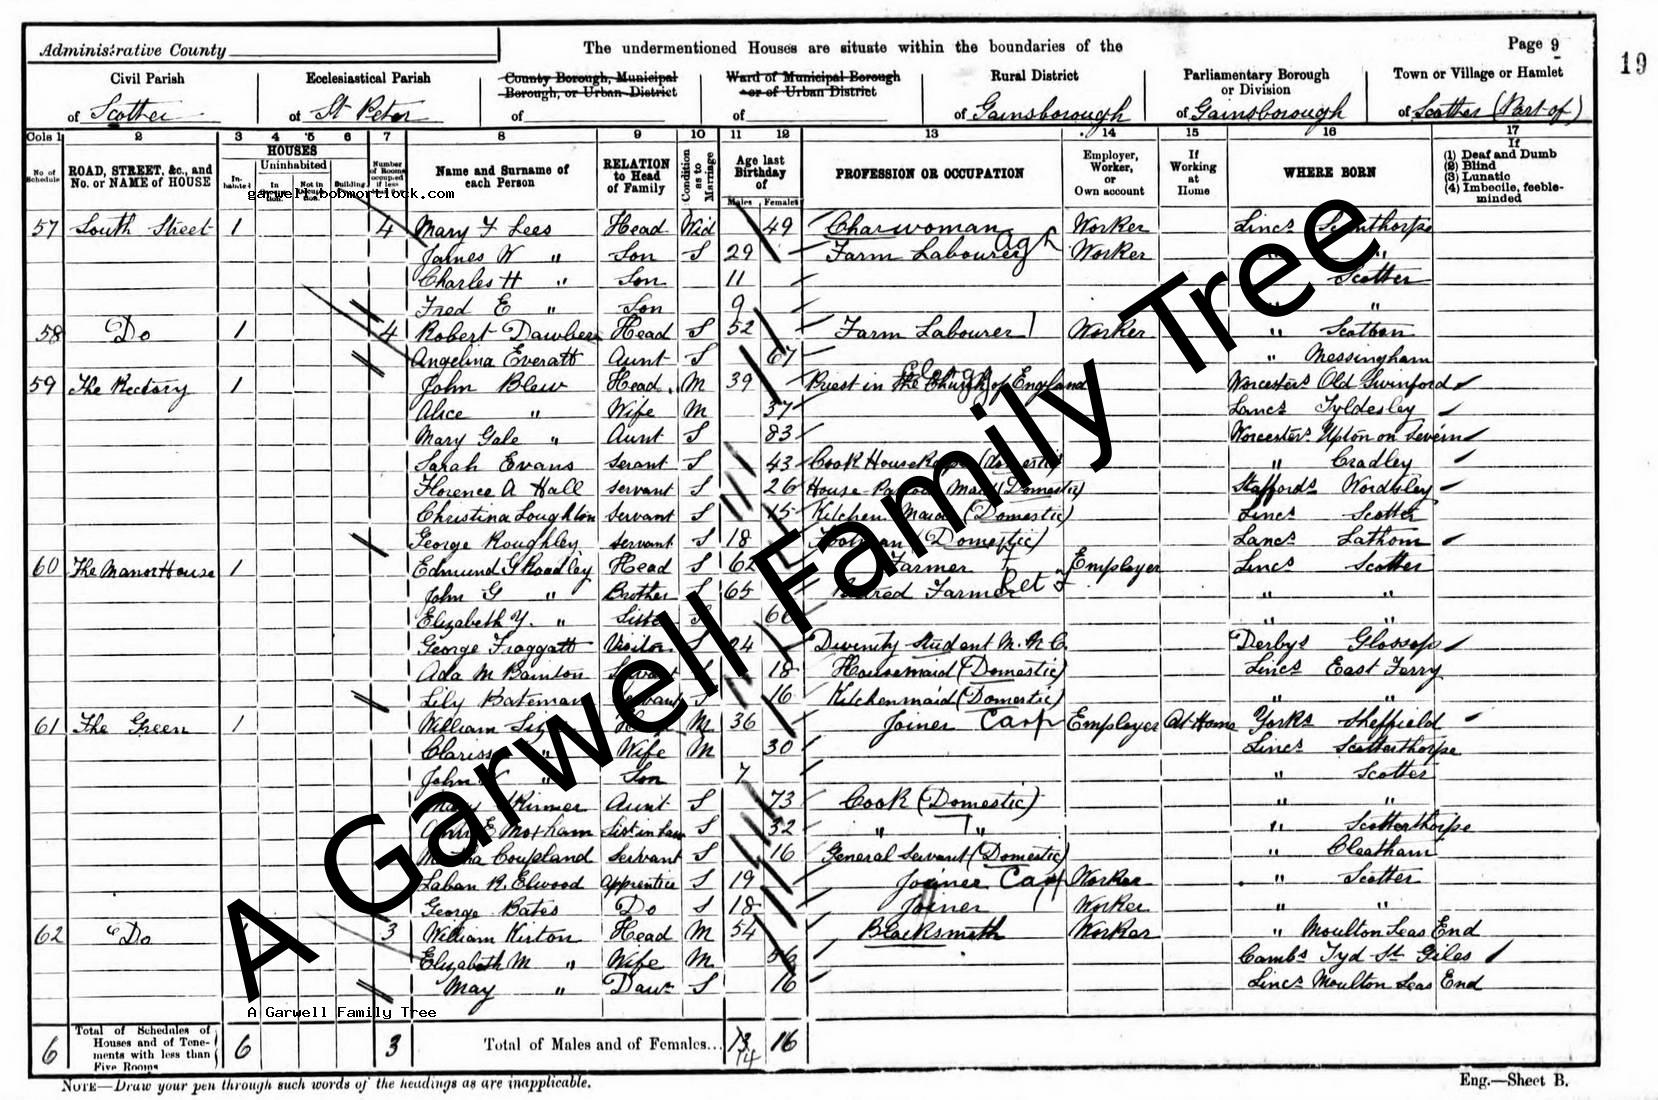 Administrative County
The undermentioned Houses are situate within the boundaries of the
Page 9
19
Civil Parish
of Scotter
Ecclesiastical Parish
of St Peter
County Borough, Municipal Borough, or Urban District
of
Ward of Municipal Borough or of Urban District
of
Rural District
of Gainsborough
Parliamentary Borough or Division
of Gainsborough
Town or Village or Hamlet
of Scotter (Part of)
Cols 1 2 3 4 5 6 7 8 9 10 11 12 13 14 15 16 17
No. of Schedule
ROAD, STREET, &c., and No. or NAME of HOUSE
HOUSES
Inhabited
Uninhabited
Building
Number of Rooms occupied if less
Name and Surname of each Person
RELATION to Head of Family
Condition as to Marriage
Age last Birthday of
Males Females
PROFESSION OR OCCUPATION
Employer, Worker, or Own account
If Working at Home
WHERE BORN
If
(1) Deaf and Dumb
(2) Blind
(3) Lunatic
(4) Imbecile, feeble-minded
garwell.bobmortlock.com
57 South Street 1 4 Mary F Lees Head Wid 49 Charwoman Worker Lincs Scunthorpe
James W " Son S 29 Farm Labourer Agl Worker " "
Charles H " Son 11 Scotter
Fred E " Son 9 " "
58 Do 1 4 Robert Dawber Head S 52 Farm Labourer Worker " Scotton
Angelina Everatt Aunt S 67 " Messingham
59 The Rectory 1 John Blew Head M 39 Priest in the Church of England Clergy Worcesters Old Swinford
Alice " Wife M 37 Lancs Tyldesley
Mary Gale " Aunt S 83 Worcesters Upton on Severn
Sarah Evans Serant S 43 Cook Housekeeper (domestic) " Cradley
Florence A Hall servant S 26 House-Parlour Maid (Domestic) Staffords Wordsley
Christina Loughton Servant S 15 Kitchen Maid (Domestic) Lincs Scotter
George Roughley servant S 18 Footman (Domestic) Lancs Lathom
60 The Manor House 1 Edmund G Roadley Head S 62 Farmer Employer Lincs Scotter
John G " Brother S 65 Retired Farmer Ret " "
Elizabeth Y. " Sister S 60 " "
George Froggatt Visitor S 24 Divinity Student Derbys Glossop
Ada M Bainton Servant S 18 Housemaid (Domestic) Lincs East Ferry
Lily Bateman Servant S 16 Kitchenmaid (Domestic) " "
61 The Green 1 William Head M 36 Joiner Carp Employer At Home Yorks Sheffield
Clariss " Wife M 30 Lincs Scotterthorpe
John W " Son 7 " Scotter
Mary Skinner Aunt S 73 Cook (Domestic) " "
Ann E Moxham Sist in law S 32 " " " Scotterthorpe
Martha Coupland Servant S 16 General Servant (Domestic) " Cleatham
Laban R. Elwood Apprentice S 19 Joiner Carp Worker " Scotter
George Bates Do S 18 Joiner Worker " "
62 Do 1 3 William Kirton Head M 54 Blacksmith Worker " Moulton Seas End
Elizabeth M " Wife M 56 Cambs Tyd St Giles
May " Daur S 16 Lincs Moulton Seas End
A Garwell Family Tree
A Garwell Family Tree
6 Total of Schedules of Houses and of Tenements with less than Five Rooms 6 3 Total of Males and of Females... 13 14 16
NOTE—Draw your pen through such words of the headings as are inapplicable.
Eng.—Sheet B.